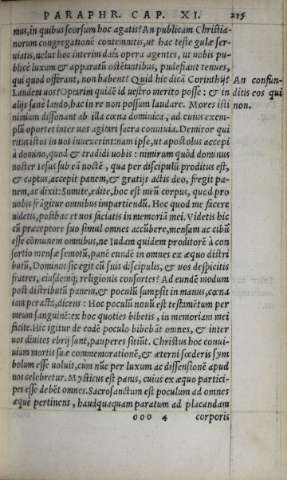 PARAPHR. CAP. XI. 215
mus, in quibus seorsum hoc agatis? An publicam Christia-
norum congregationē contemnitis, ut hac teste gulæ ser-
uiatis, uelut hoc interim dānt opera agentes, ut uobis pu-
blice luxum & apparatū ostētantibus, pudefiant tenues,
qui quod offerant, non habent? Quid hic dicā Corinthij?
An confun-
Laudem uos? Optarim quidē id uestro merito posse: & in
ditis eos qui
alijs sanè laudo, hac in re non possum laudare. Mores isti
non.
nimium dissonant ab illa cœna dominica, ad cuius exem-
plū oportet inter uos agitari sacra conuiuia. Demiror qui
ritus istos in uos inuexerint: nam ipse, ut apostolus accepi
à domino, quod & tradidi uobis: nimirum quòd dominus
noster Iesus sub eā noctē, qua per discipulū proditus est,
& captus, accepit panem, & gratijs actis deo, fregit pa-
nem, ac dixit: Sumite, edite, hoc est meū corpus, quod pro
uobis frāgitur omnibus impartiendū. Hoc quod me facere
uidetis, posthac et uos faciatis in memoriā mei. Videtis hic
cū præceptore suo simul omnes accūbere, mensam ac cibū
esse cōmunem omnibus, ne Iudam quidem proditorē à con
sortio mensæ semotū, panē eundē in omnes ex æquo distri
butū, Dominus sic egit cū suis discipulis, & uos despicitis
fratres, eiusdemq́; religionis consortes? Ad eundē modum
post distributū panem, & poculū sumpsit in manus, cœna
iam peracta, dicens: Hoc poculū nouū est testamētum per
meum sanguinē: ex hoc quoties bibetis, in memoriam mei
facite. Hic igitur de eodē poculo bibebāt omnes, & inter
uos diuites ebrij sunt, pauperes sitiūt. Christus hoc conui-
uium mortis suæ commemorationē, & æterni fœderis sym
bolum esse uoluit, cum nūc per luxum ac dissensionē apud
nos celebretur. Mysticus est panis, cuius ex æquo partici-
pes esse debēt omnes. Sacrosanctum est poculum ad omnes
æquè pertinens, haudquaquam paratum ad placandam
ooo 4 corporis